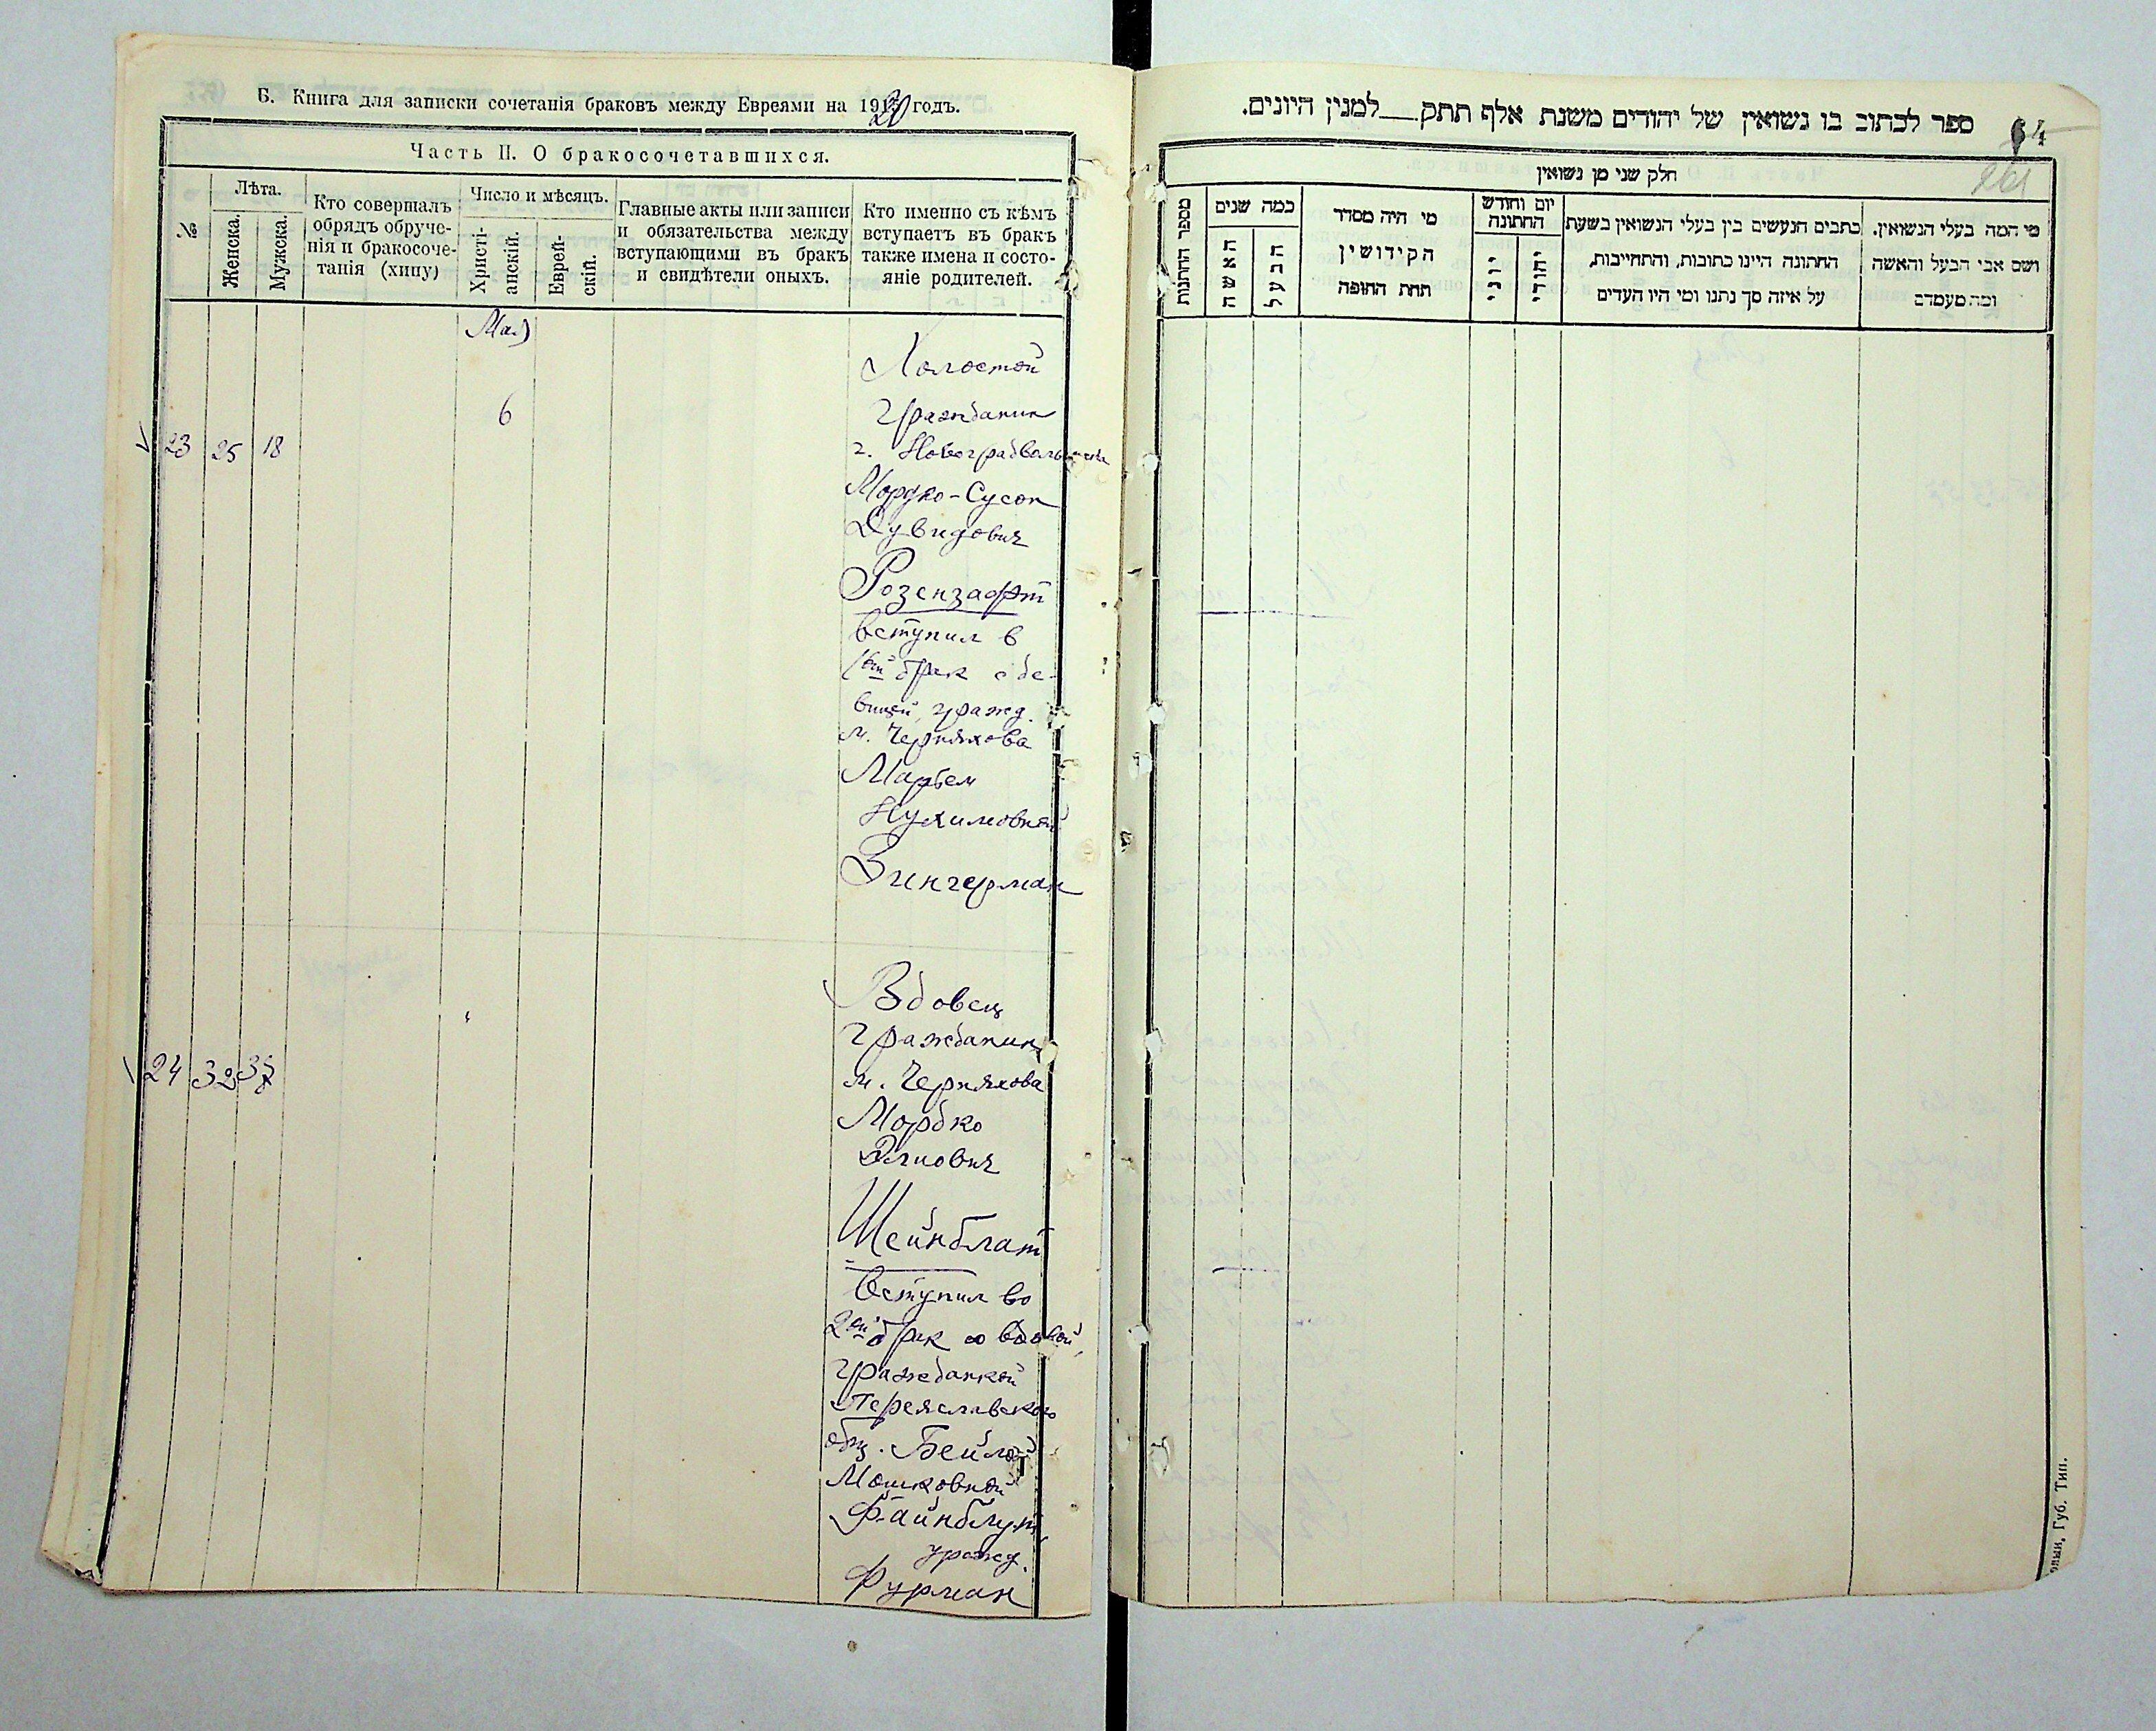 Б. Книга для записки сочетанія браковъ между Евреями на 1920 годъ.
Часть II. О бракосочетавшихся.
№
Лѣта.
Женска.
Мужска.
Кто совершалъ
обрядъ обруче-
нія и бракосоче-
танія (хипу)
Число и мѣсяцъ.
Христі-
анскій.
Еврей-
скій.
Главные акты или записи
и обязательства между
вступающими въ бракъ
и свидѣтели оныхъ.
Кто именно съ кѣмъ
вступаетъ въ бракъ
также имена и состо-
яніе родителей.
Май
23 25 18
6
Холостой
Гражданин
г. Новоградволынска
Мордко-Сусон
Дувидович
Розензафт
вступил в
1ый брак с де-
вицей, гражд.
м. Черняхова
Марьем
Нухимовной
Зингерман
24 32
Вдовец
Гражданин
м. Черняхова
Мордко
Элиович
Шейнблат
Вступил во
2ой брак со вдовой,
гражданкой
Переяславского
общ. Бейлой
Мошковной
Файнблут,
урожд.
Фурман
ספר לכתוב בו נשואין של יהודים משנת אלף תתק___למנין היונים.
64
261
חלק שני מן נשואין
מספר החתונות
כמה שנים
האשה
הבעל
מי היה מסדר
הקידושין
תחת החופה
יום וחודש
החתונה
יוני
יהודי
כתבים הנעשים בין בעלי הנשואין בשעת
החתונה היינו כתובות, והתחייבות,
על איזה סך נתנו ומי היו העדים
מי המה בעלי הנשואין.
ושם אבי הבעל והאשה
ומה מעמדם
Губ. Тип.